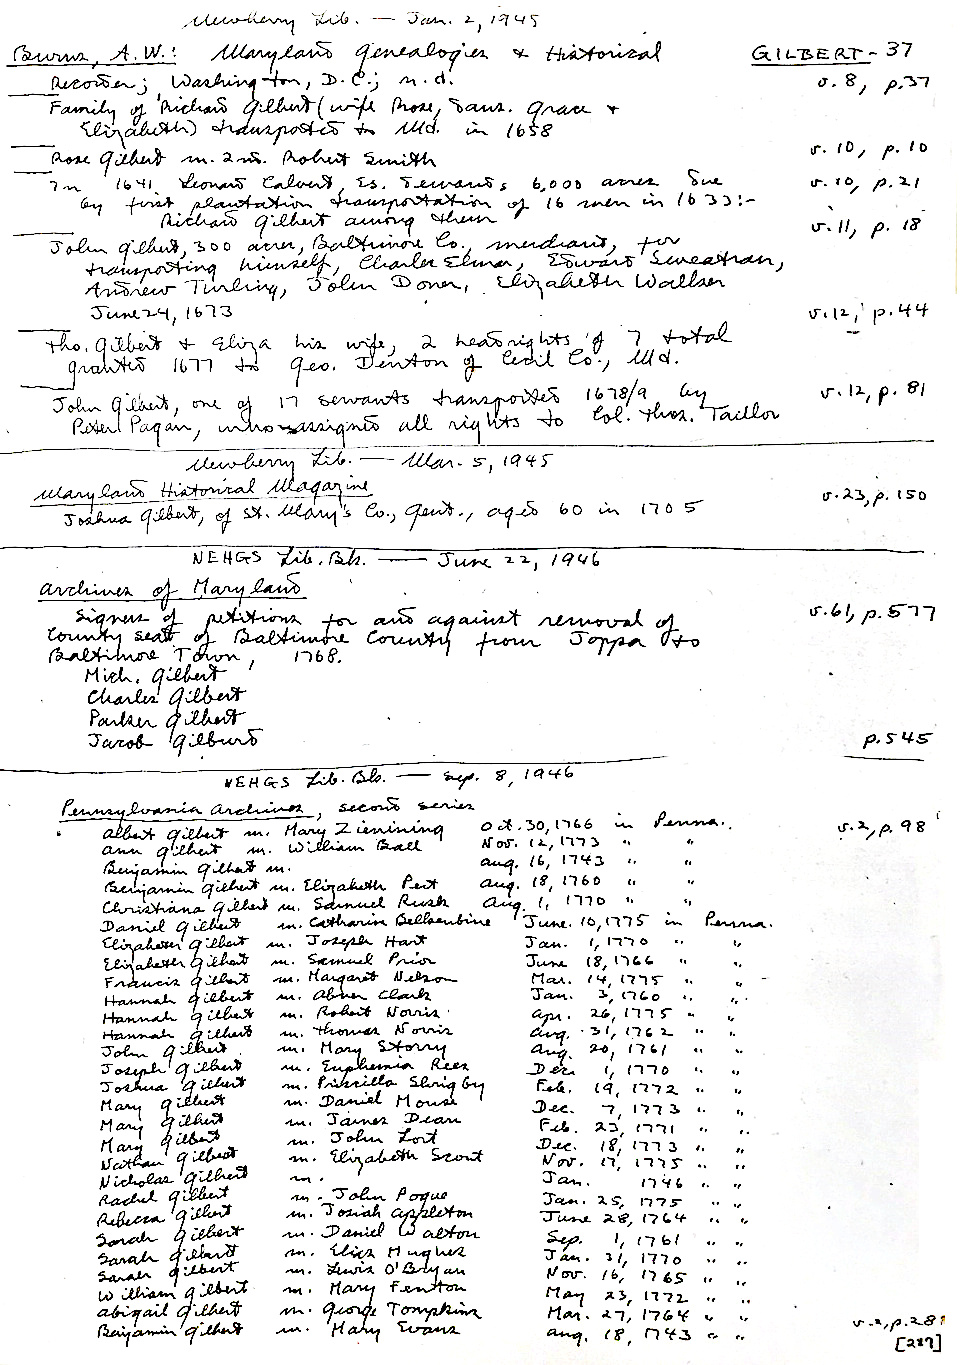 Newberry Lib. — Jan. 2, 1945
Burns, A.W.: Maryland Genealogies & Historical GILBERT - 37
Recorder; Washington, D.C.; n.d. v. 8, p. 37
Family of Richard Gilbert (wife Rose, daus. Grace &
Elizabeth) transported to Md. in 1658
Rose Gilbert m. 2nd. Robert Smith v. 10, p. 10
In 1641 Leonard Calvert, Es. demands 6,000 acres due v. 10, p. 21
by first plantation transportation of 16 men in 1633:-
Richard Gilbert among them v. 11, p. 18
John Gilbert, 300 acres, Baltimore Co., merchant, for
transporting himself, Charles Elmer, Edward Sweatnan,
Andrew Turling, John Doner, Elizabeth Walker
June 24, 1673 v. 12, p. 44
Tho. Gilbert & Eliza his wife, 2 headrights of 7 total
granted 1677 to Geo. Denton of Cecil Co., Md.
John Gilbert, one of 17 servants transported 1678/9 by v. 12, p. 81
Peter Pagan, who assigned all rights to Col. Thos. Taillor
Newberry Lib. — Mar. 5, 1945
Maryland Historical Magazine v. 23, p. 150
Joshua Gilbert, of St. Mary's Co., Gent., aged 60 in 1705
NEHGS Lib. Bk. — June 22, 1946
Archives of Maryland
Signers of petitions for and against removal of v. 61, p. 577
County seat of Baltimore County from Joppa to
Baltimore Town, 1768.
Mich. Gilbert
Charles Gilbert
Parker Gilbert
Jacob Gilburd p. 545
NEHGS Lib. Bk. — Sep. 8, 1946
Pennsylvania Archives, second series
Albert Gilbert m. Mary Zienining Oct. 30, 1766 in Penna. v. 2, p. 98
Ann Gilbert m. William Ball Nov. 12, 1773 " "
Benjamin Gilbert m. Aug. 16, 1743 " "
Benjamin Gilbert m. Elizabeth Pert Aug. 18, 1760 " "
Christiana Gilbert m. Samuel Rusk Aug. 1, 1770 " "
Daniel Gilbert m. Catharin Bellsenbine June 10, 1775 in Penna.
Elizabeth Gilbert m. Joseph Hart Jan. 1, 1770 " "
Elizabeth Gilbert m. Samuel Prior June 18, 1766 " "
Francis Gilbert m. Margaret Nelson Mar. 14, 1775 " "
Hannah Gilbert m. Abner Clark Jan. 3, 1760 " "
Hannah Gilbert m. Robert Norris Apr. 26, 1775 " "
Hannah Gilbert m. Thomas Norris Aug. 31, 1762 " "
John Gilbert m. Mary Storry Aug. 20, 1761 " "
Joseph Gilbert m. Euphemia Rees Dec. 1, 1770 " "
Joshua Gilbert m. Priscilla Shrigby Feb. 19, 1772 " "
Mary Gilbert m. Daniel Mouse Dec. 7, 1773 " "
Mary Gilbert m. James Dean Feb. 23, 1771 " "
Mary Gilbert m. John Lort Dec. 18, 1773 " "
Nathan Gilbert m. Elizabeth Scout Nov. 17, 1775 " "
Nicholas Gilbert m. Jan. 1746 " "
Rachel Gilbert m. John Pogue Jan. 25, 1775 " "
Rebecca Gilbert m. Josiah Appleton June 28, 1764 " "
Sarah Gilbert m. Daniel Walton Sep. 1, 1761 " "
Sarah Gilbert m. Elias Hughes Jan. 31, 1770 " "
Sarah Gilbert m. Lewis O'Bryan Nov. 16, 1765 " "
William Gilbert m. Mary Fenton May 23, 1772 " "
Abigail Gilbert m. George Tompkins Mar. 27, 1764 " "
Benjamin Gilbert m. Mary Evans Aug. 18, 1743 " " v. 2, p. 281
[287]